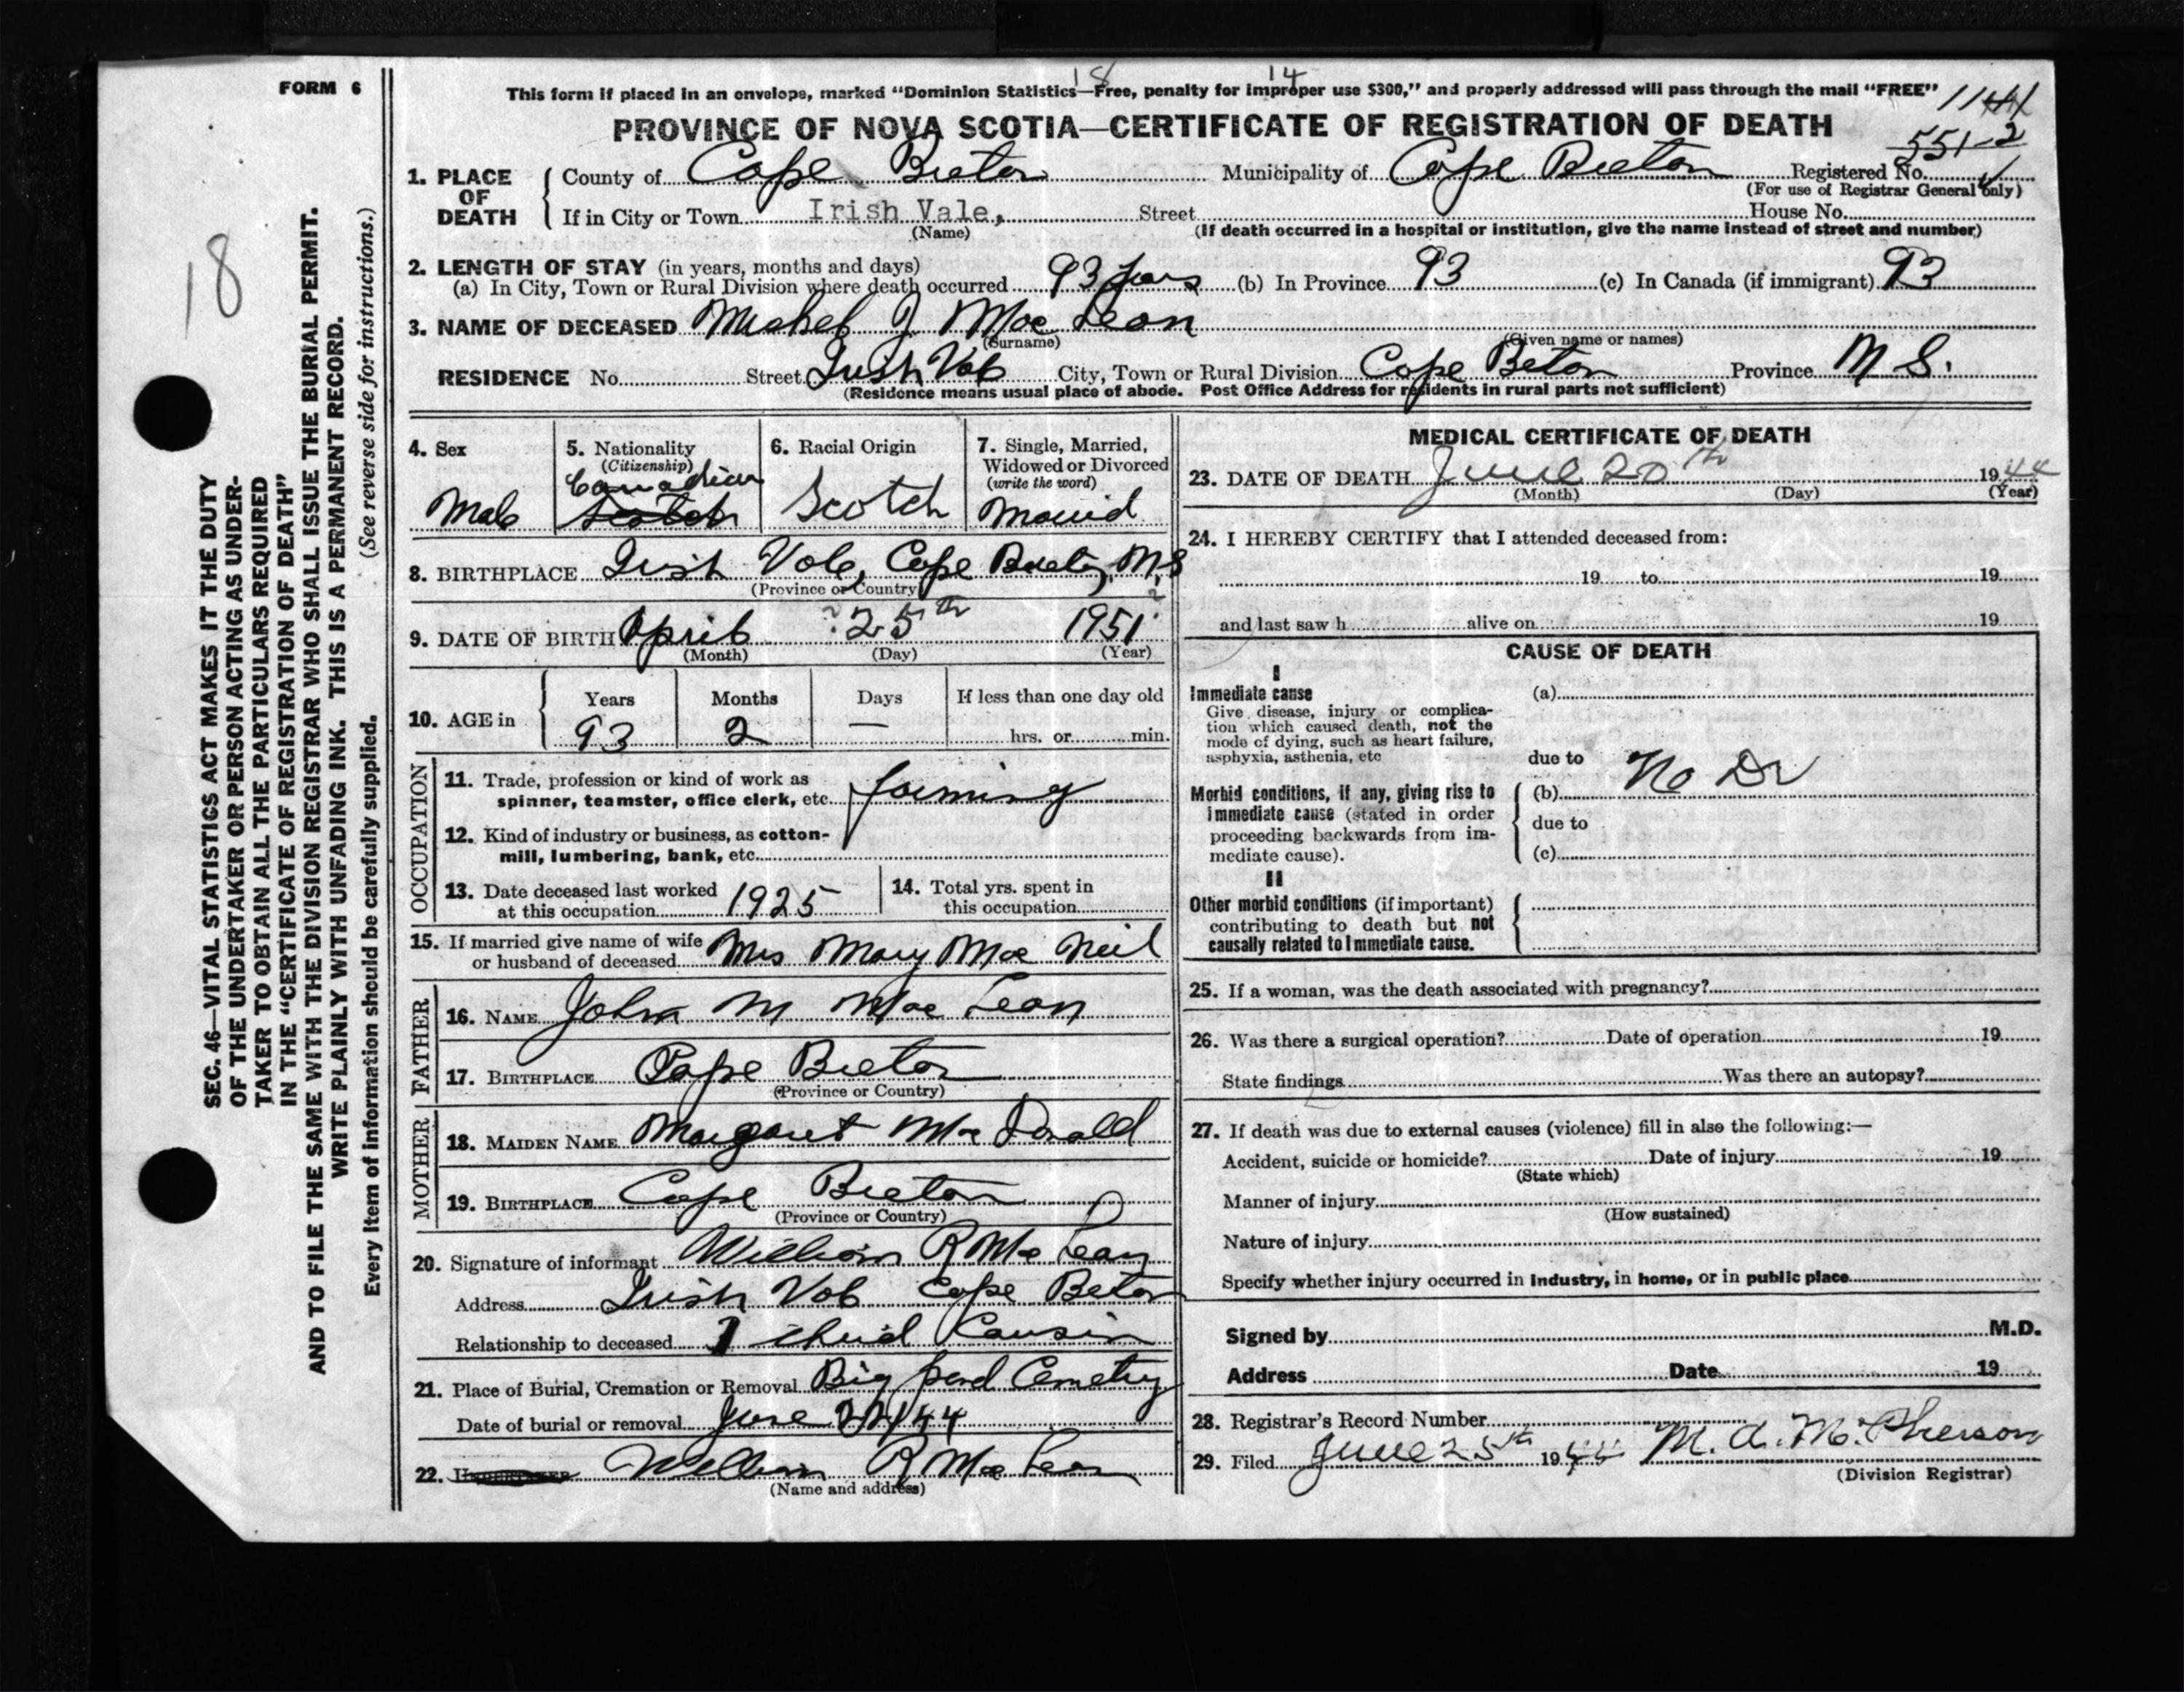 FORM 6
18 14
This form if placed in an envelope, marked "Dominion Statistics—Free, penalty for improper use $300," and properly addressed will pass through the mail "FREE"
PROVINCE OF NOVA SCOTIA—CERTIFICATE OF REGISTRATION OF DEATH
551-2
1. PLACE OF DEATH County of Cape Breton Municipality of Cape Breton Registered No.
(For use of Registrar General only)
If in City or Town Irish Vale, Street House No.
(Name) (If death occurred in a hospital or institution, give the name instead of street and number)
2. LENGTH OF STAY (in years, months and days)
(a) In City, Town or Rural Division where death occurred 93 years (b) In Province 93 (c) In Canada (if immigrant) 93
3. NAME OF DECEASED Michel J Mac Lean
(Surname) (Given name or names)
RESIDENCE No. Street Irish Vale City, Town or Rural Division Cape Beton Province N S.
(Residence means usual place of abode. Post Office Address for residents in rural parts not sufficient)
4. Sex 5. Nationality 6. Racial Origin 7. Single, Married,
(Citizenship) Widowed or Divorced
(write the word)
Canadian
Male Scotch Scotch Married
8. BIRTHPLACE Irish Vale, Cape Breton, N S
(Province or Country)
9. DATE OF BIRTH April ? 25th 1951 ?
(Month) (Day) (Year)
10. AGE in Years Months Days If less than one day old
93 2 — hrs. or min.
OCCUPATION
11. Trade, profession or kind of work as
spinner, teamster, office clerk, etc. farming
12. Kind of industry or business, as cotton-
mill, lumbering, bank, etc.
13. Date deceased last worked
at this occupation 1925
14. Total yrs. spent in
this occupation
15. If married give name of wife
or husband of deceased Mrs Mary Mac Neil
FATHER
16. NAME John M Mac Lean
17. BIRTHPLACE Cape Breton
(Province or Country)
MOTHER
18. MAIDEN NAME Margaret Mac Donald
19. BIRTHPLACE Cape Breton
(Province or Country)
20. Signature of informant William R Mac Lean
Address Irish Vale Cape Beton
Relationship to deceased third Cousin
21. Place of Burial, Cremation or Removal Big Pond Cemetry
Date of burial or removal June 22/44
22. UNDERTAKER William R Mac Lean
(Name and address)
MEDICAL CERTIFICATE OF DEATH
23. DATE OF DEATH June 20th 1944
(Month) (Day) (Year)
24. I HEREBY CERTIFY that I attended deceased from:
19 to 19
and last saw h alive on 19
CAUSE OF DEATH
I
Immediate cause (a)
Give disease, injury or complica-
tion which caused death, not the
mode of dying, such as heart failure,
asphyxia, asthenia, etc
due to No Dr
Morbid conditions, if any, giving rise to (b)
immediate cause (stated in order
proceeding backwards from im-
mediate cause).
due to
(c)
II
Other morbid conditions (if important)
contributing to death but not
causally related to immediate cause.
25. If a woman, was the death associated with pregnancy?
26. Was there a surgical operation? Date of operation 19
State findings Was there an autopsy?
27. If death was due to external causes (violence) fill in also the following:—
Accident, suicide or homicide? Date of injury 19
(State which)
Manner of injury
(How sustained)
Nature of injury
Specify whether injury occurred in industry, in home, or in public place
Signed by M.D.
Address Date 19
28. Registrar's Record Number
29. Filed June 25th 1944 M. A. McPherson
(Division Registrar)
18
SEC. 46—VITAL STATISTICS ACT MAKES IT THE DUTY
OF THE UNDERTAKER OR PERSON ACTING AS UNDER-
TAKER TO OBTAIN ALL THE PARTICULARS REQUIRED
IN THE "CERTIFICATE OF REGISTRATION OF DEATH"
AND TO FILE THE SAME WITH THE DIVISION REGISTRAR WHO SHALL ISSUE THE BURIAL PERMIT.
WRITE PLAINLY WITH UNFADING INK. THIS IS A PERMANENT RECORD.
(See reverse side for instructions.)
Every item of information should be carefully supplied.